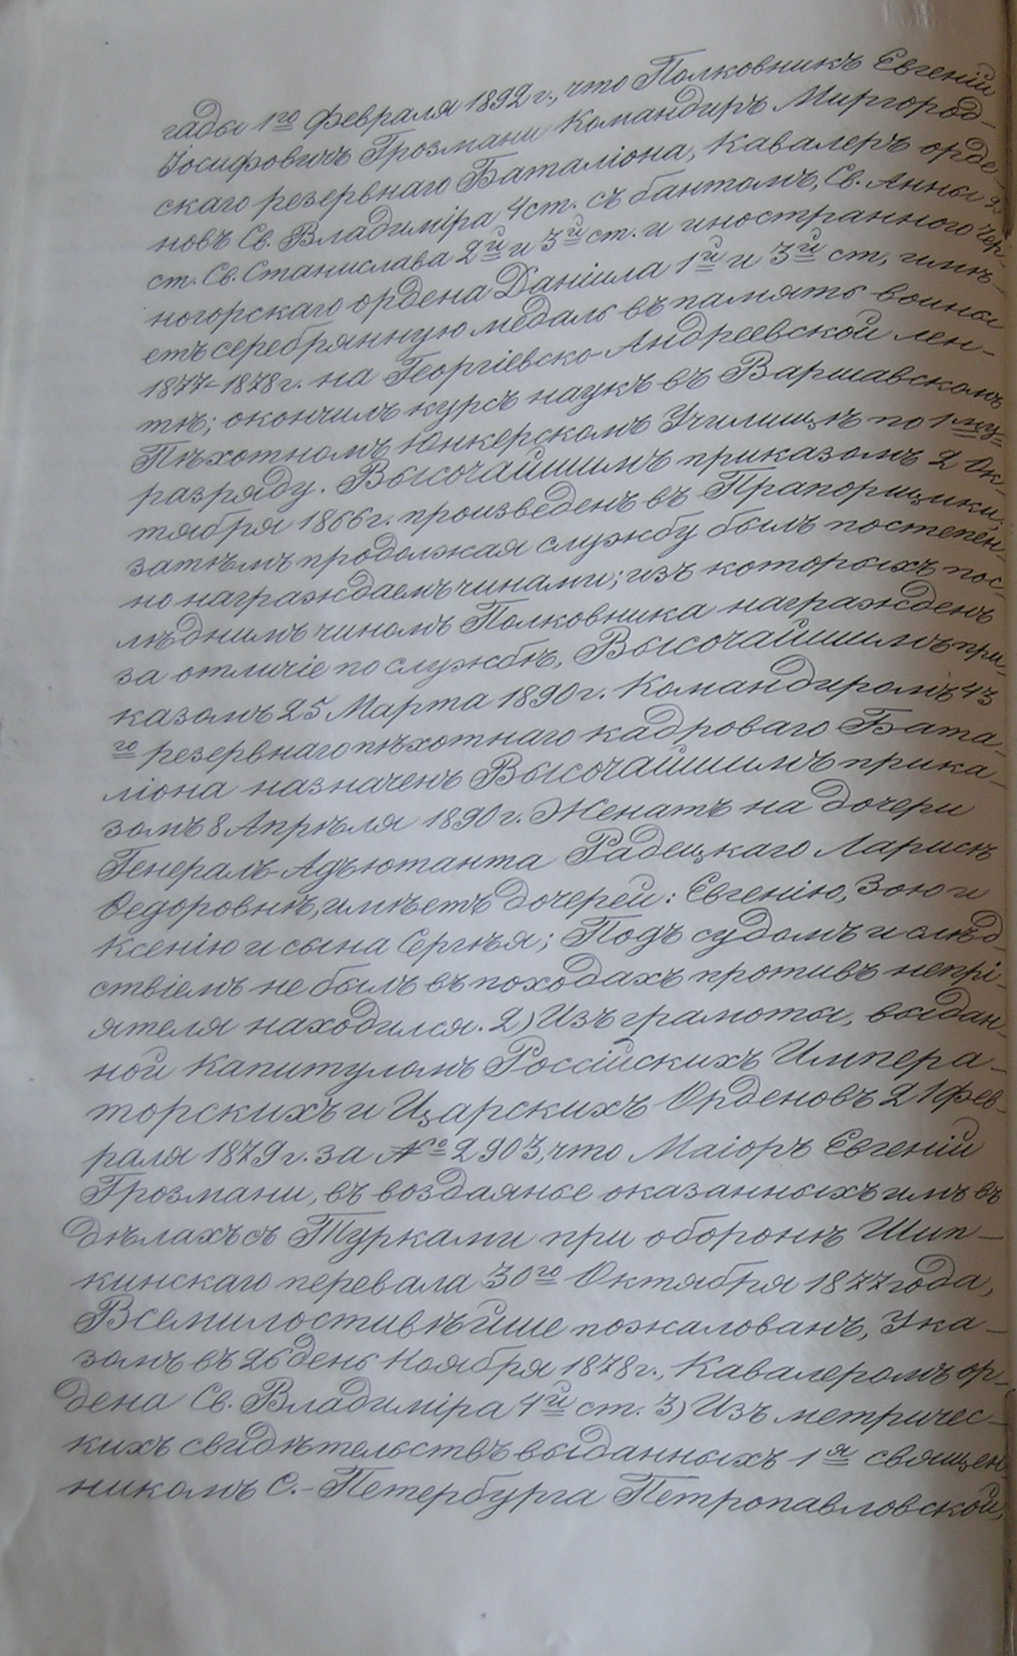 гады 1го Февраля 1892 г., что Полковникъ Евгеній
Іосифовичъ Грозмани Командиръ Миргород-
скаго резервнаго Баталіона, Кавалеръ орде-
новъ Св. Владиміра 4 ст. съ бантомъ, Св. Анны 2
ст. Св. Станислава 2й и 3й ст. и иностраннаго Чер-
ногорскаго ордена Даніила 1й и 3й ст., имѣ-
етъ серебрянную медаль въ память войны
1877-1878 г. на Георгіевско-Андреевской лен-
тѣ; окончилъ курсъ наукъ въ Варшавскомъ
Пѣхотномъ Юнкерскомъ Училищѣ по 1му
разряду. Высочайшимъ приказомъ 2 Ок-
тября 1866 г. произведенъ въ Прапорщики;
затѣмъ продолжая службу былъ постепен-
но награждаемъ чинами; изъ которыхъ пос-
лѣднимъ чиномъ Полковника награжденъ
за отличіе по службѣ, Высочайшимъ при-
казомъ 25 Марта 1890 г. Командиромъ 43
го резервнаго пѣхотнаго кадроваго Бата-
ліона назначенъ Высочайшимъ прика-
зомъ 8 Апрѣля 1890 г. Женатъ на дочери
Генералъ-Адъютанта Радецкаго Ларисѣ
Ѳедоровнѣ, имѣетъ дочерей: Евгенію, Зою и
Ксенію и сына Сергѣя; Подъ судомъ и слѣд-
ствіемъ не былъ въ походахъ противъ непрі-
ятеля находился. 2) Изъ грамоты, выдан-
ной Капитуломъ Россійскихъ Импера-
торскихъ и Царскихъ Орденовъ 21 Фев-
раля 1879 г. за № 2903, что Маіоръ Евгеній
Грозмани, въ воздаянье оказанныхъ имъ въ
дѣлахъ съ Турками при оборонѣ Шип-
кинскаго перевала 30го Октября 1877 года,
Всемилостивѣйше пожалованъ, Ука-
зомъ въ 26 день Ноября 1878 г., Кавалеромъ ор-
дена Св. Владиміра 4й ст. 3) Изъ метричес-
кихъ свидѣтельствъ выданныхъ 1я священ-
никомъ С.-Петербурга Петропавловской,